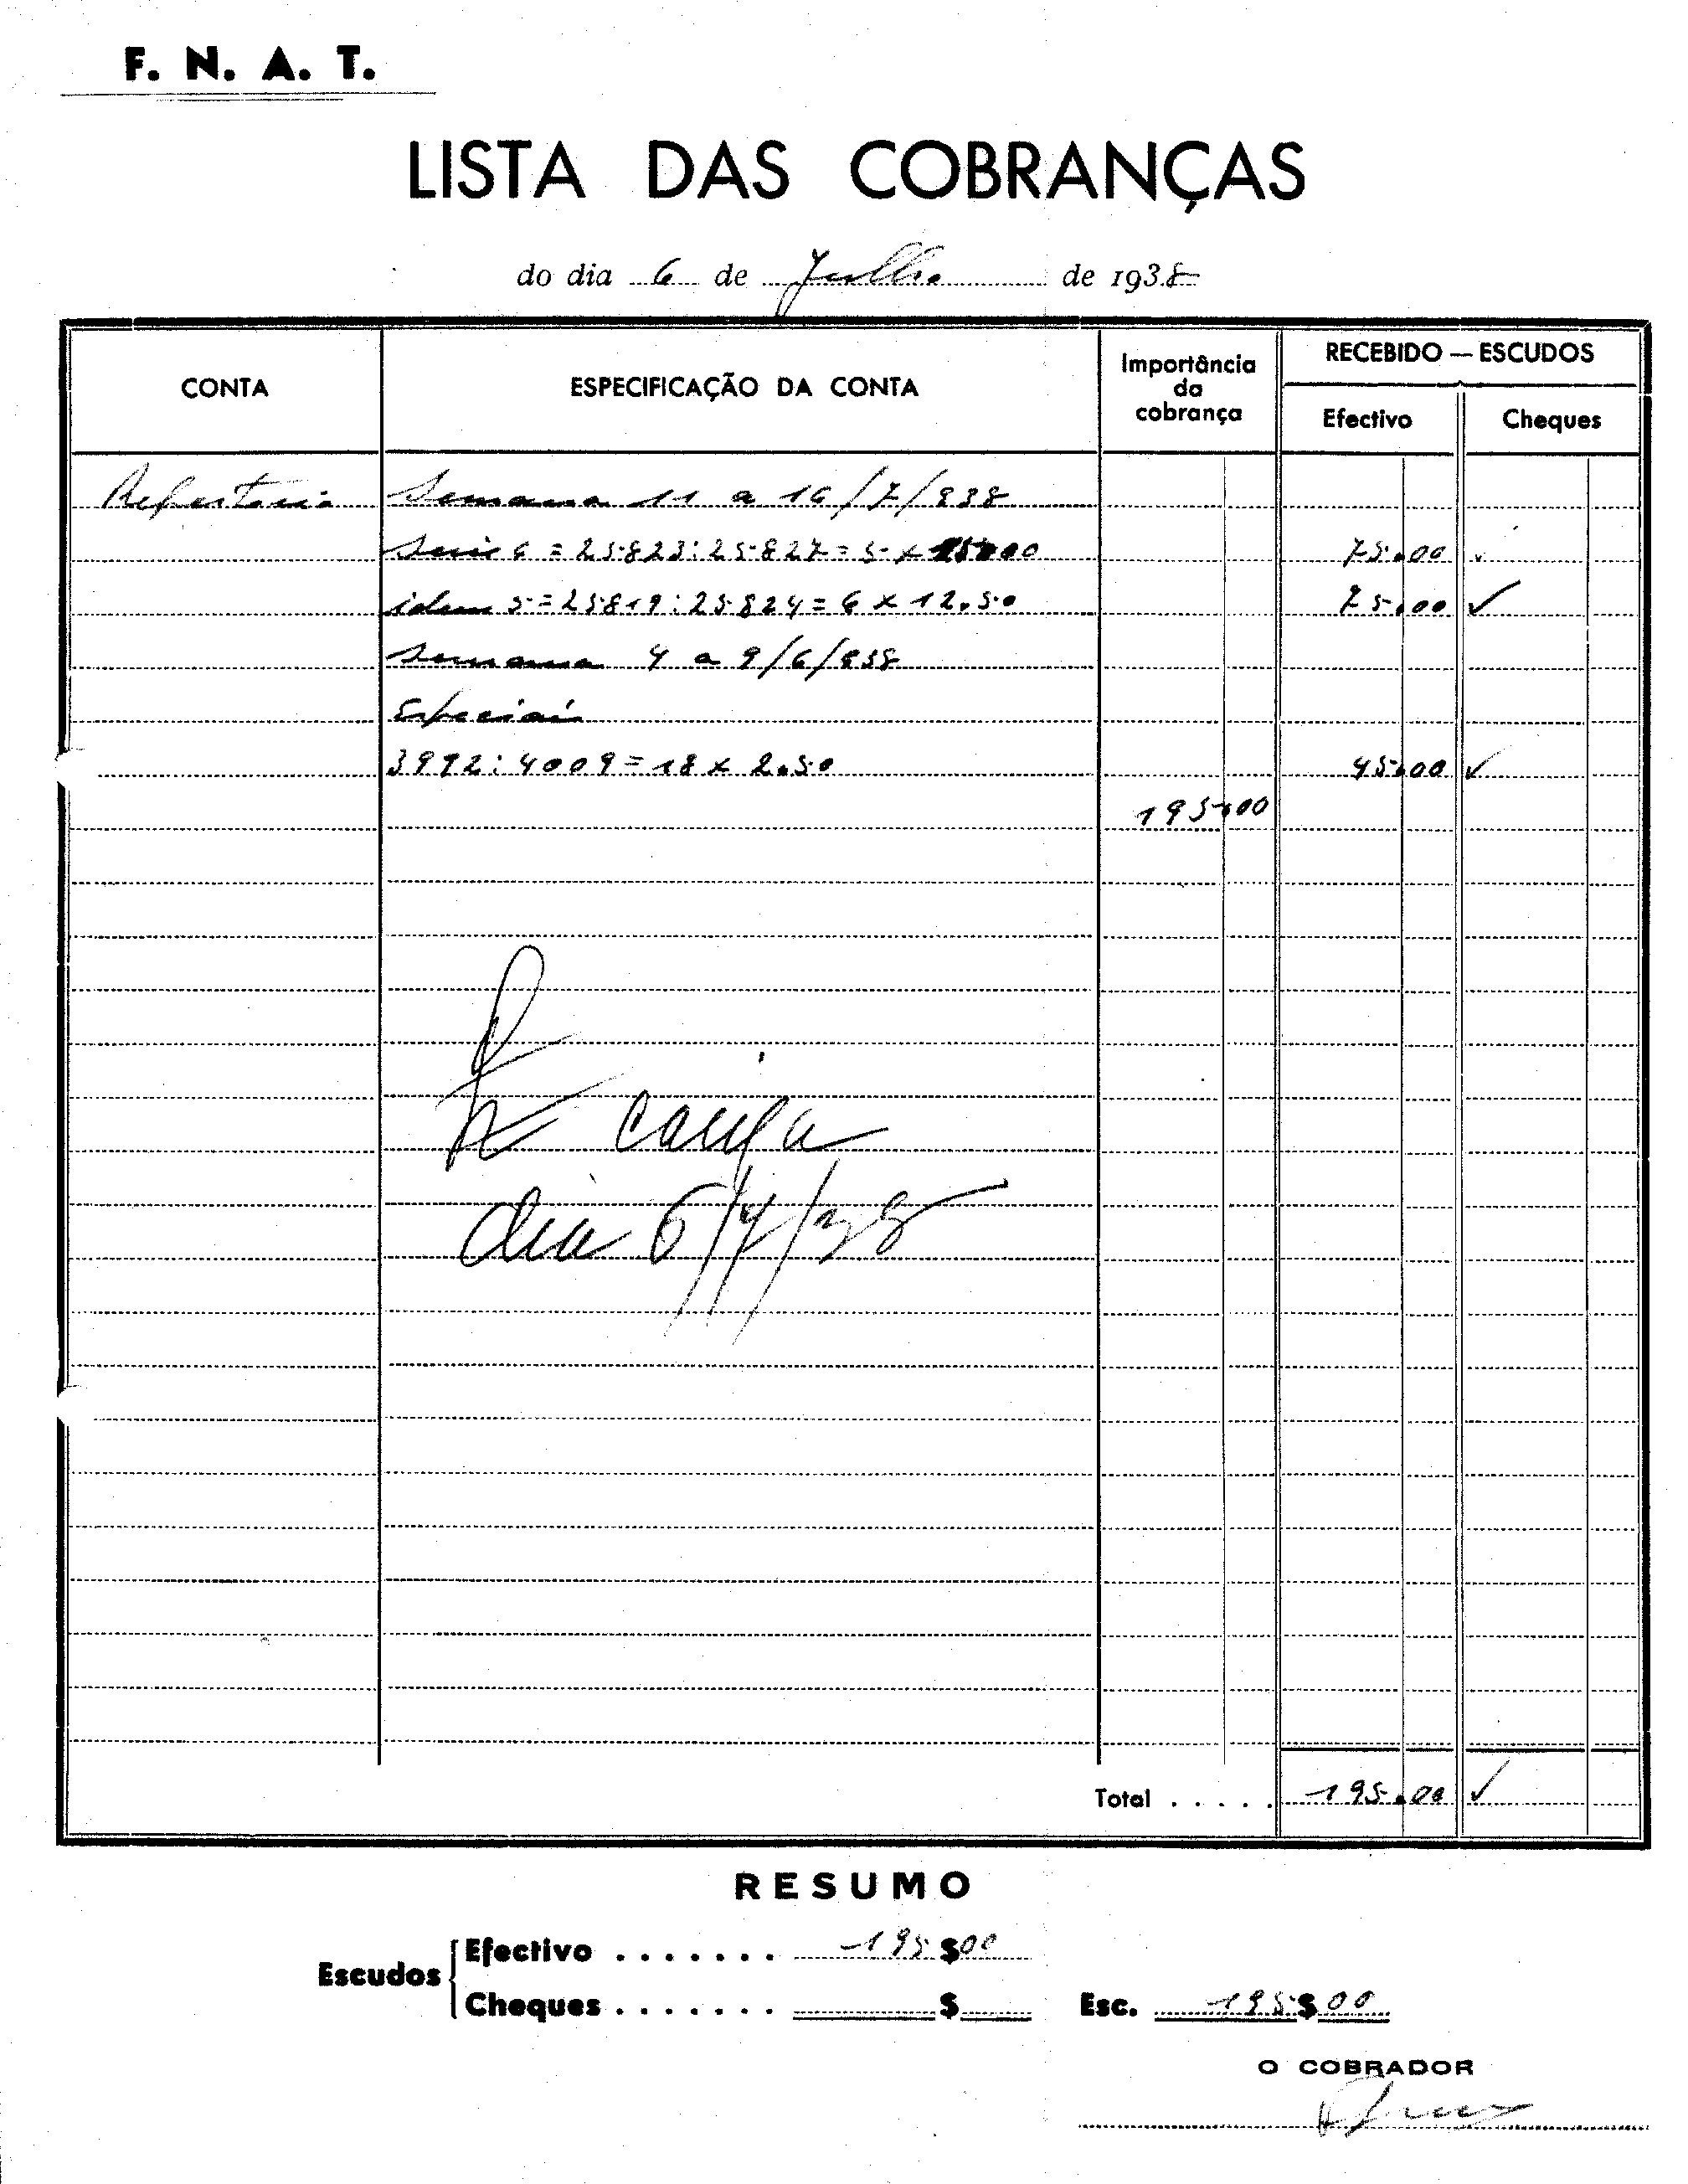 F. N. A. T.
LISTA DAS COBRANÇAS
do dia 6 de Julho de 1938
CONTA
ESPECIFICAÇÃO DA CONTA
Importância
da
cobrança
RECEBIDO — ESCUDOS
Efectivo
Cheques
Refeitorio Semana 11 a 16/7/938
Serie 6 = 25.823:25.827 = 5 x 15.00 75.00
idem 5 = 25819:25824 = 6 x 12.50 75.00 ✓
Semana 4 a 9/6/938
Especiais
3992:4009 = 18 x 2.50 45.00 ✓
195.00
caixa
dia 6/7/38
Total ..... 195.00 ✓
RESUMO
Escudos
Efectivo ....... 195$00
Cheques ....... $
Esc. 195$00
O COBRADOR